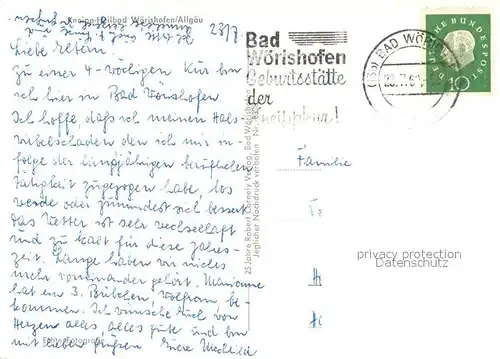 Kneipp-Heilbad Wörishofen/Allgäu
23/7
Liebe Eltern!
Zu einer 4-wöchigen Kur bin
ich hier in Bad Wörishofen.
Ich hoffe, daß ich meinen Hals-
wirbelschaden den ich mir in-
folge der langjährigen beruflichen
Tätigkeit zugezogen habe, los
werde oder zumindest sich bessert.
Das Wetter ist sehr wechselhaft
und zu kalt für diese Jahres-
zeit. Lange haben wir nichts
mehr voneinander gehört. Marianne
hat ein 3. Bübchen, Wolfram, be-
kommen. Ich wünsche Euch von
Herzen alles, alles Gute und bin
mit lieben Grüßen Eure Mechtild
Echte Fotografie
25 Jahre Robert Cornely Verlag, Bad Wörishofen
Jeglicher Nachdruck verboten Nr.
Bad
Wörishofen
Geburtsstätte
der
Kneippkur!
BAD WÖRIS
DEUTSCHE BUNDESPOST
10
Familie
privacy protection
Datenschutz